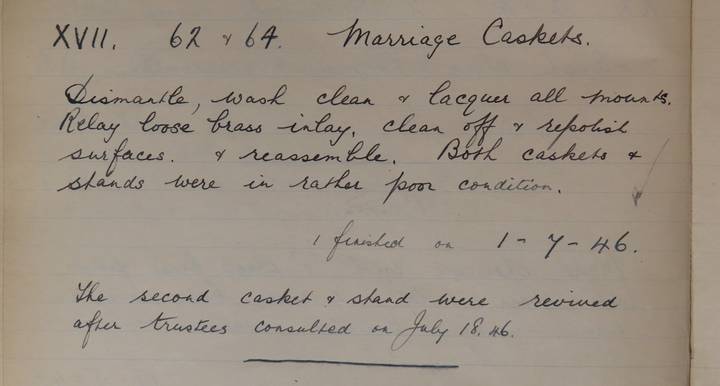 XVII. 62 & 64. Marriage Caskets.
Dismantle, wash clean & lacquer all mounts.
Relay loose brass inlay, clean off & repolish
surfaces. & reassemble. Both caskets &
stands were in rather poor condition.
1 finished on 1-7-46.
The second casket & stand were revived
after trustees consulted on July 18.46.